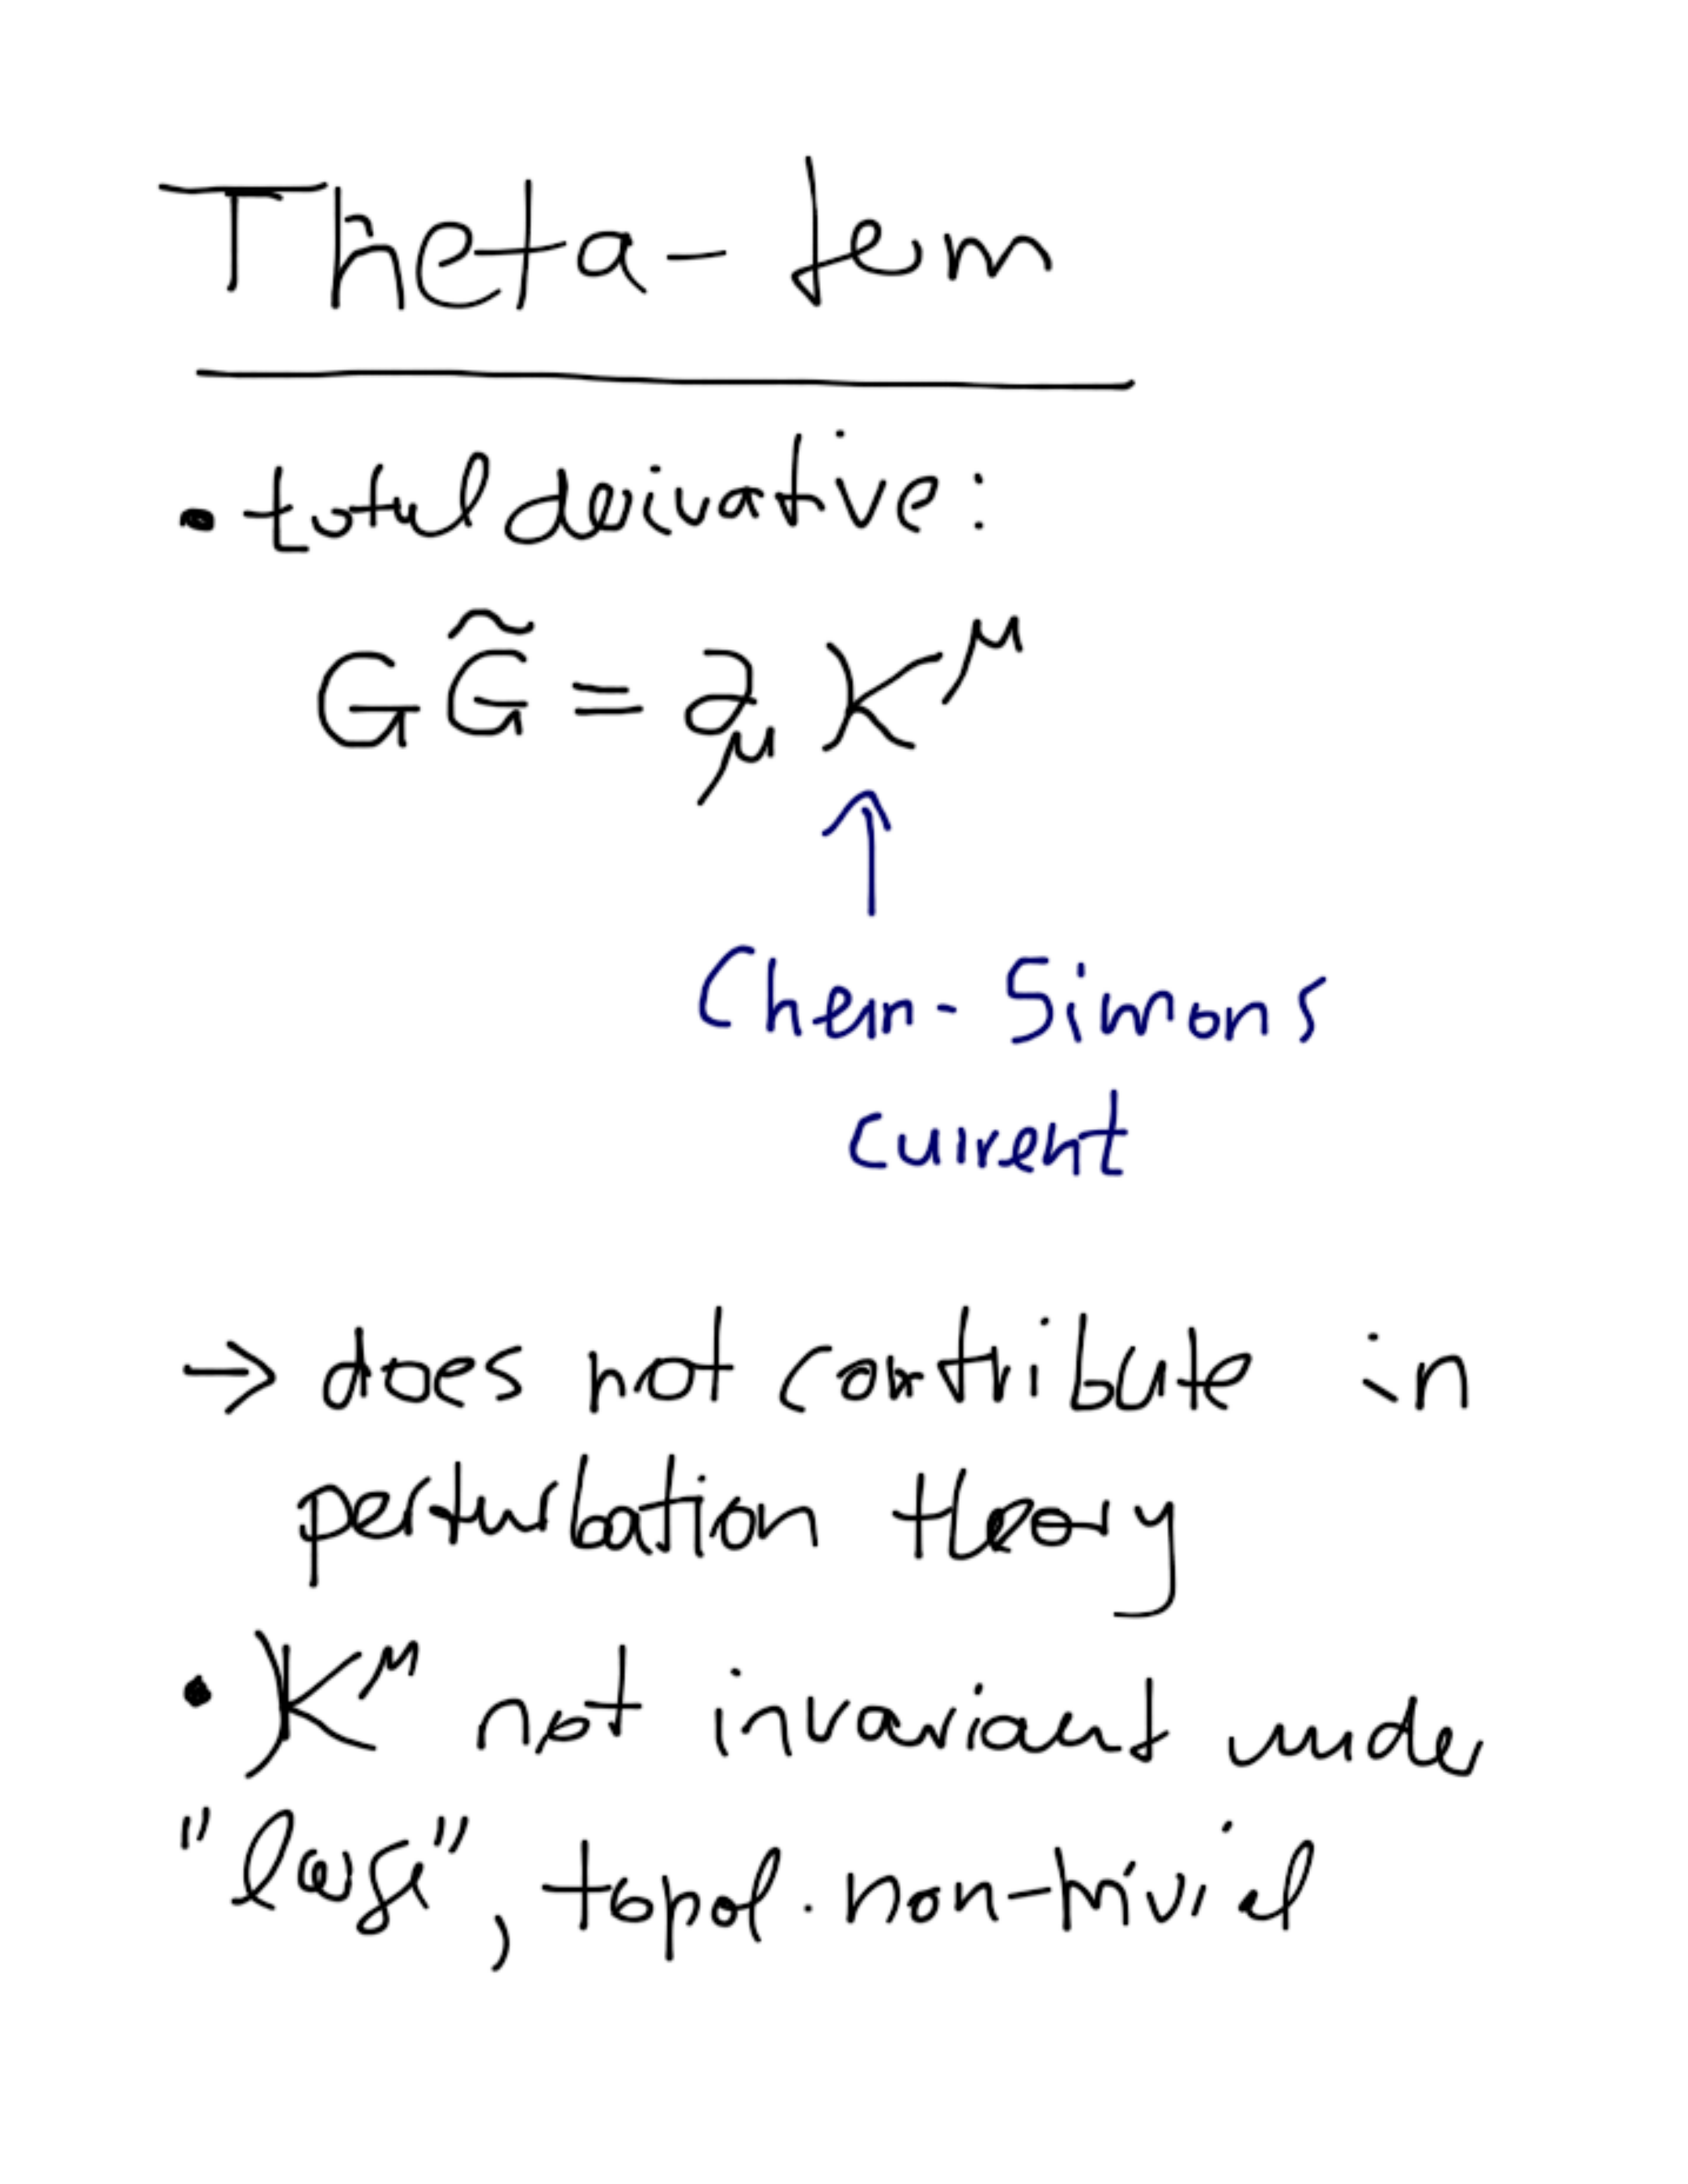 Theta-term
• total derivative:
G G̃ = ∂_μ K^μ
↑
Chern-Simons
current
→ does not contribute in
perturbation theory
• K^μ not invariant under
"large", topol. non-trivial